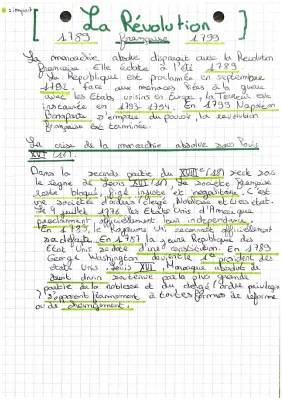 [ La Révolution ]
1789 française 1799
La monarchie absolue disparait avec la Révolution
française. Elle éclate à l'été 1789.
La République est proclamée en septembre
1792, face aux menaces liées à la guerre
avec les Etats voisins en Europe, la Terreur est
instaurée en 1793-1794. En 1799 Napoléon
Bonaparte s'empare du pouvoir, la révolution
française est terminée.
La crise de la monarchie absolue sous Louis
XVI
Dans la seconde partie du XVIIIe
le règne de Louis XVI, la société française
reste bloquée, figé injuste et inégalitaire. C'est
une société d'ordres clergé, Noblesse et tiers état.
Le 4 juillet 1776 les Etats Unis d'Amérique
proclament officiellement leur indépendance.
En 1783, le Royaume Uni reconnait officiellement
sa défaite. En 1787 la jeune République des
Etat Unis se dote d'une constitution. En 1789
George Washington devient le 1er président des
états Unis. Louis XVI, Monarque absolu de
droit divin
partie de la noblesse et du clergé (ordre privilégié)
s'opposent fermement à toutes formes de réforme
ou de changement.